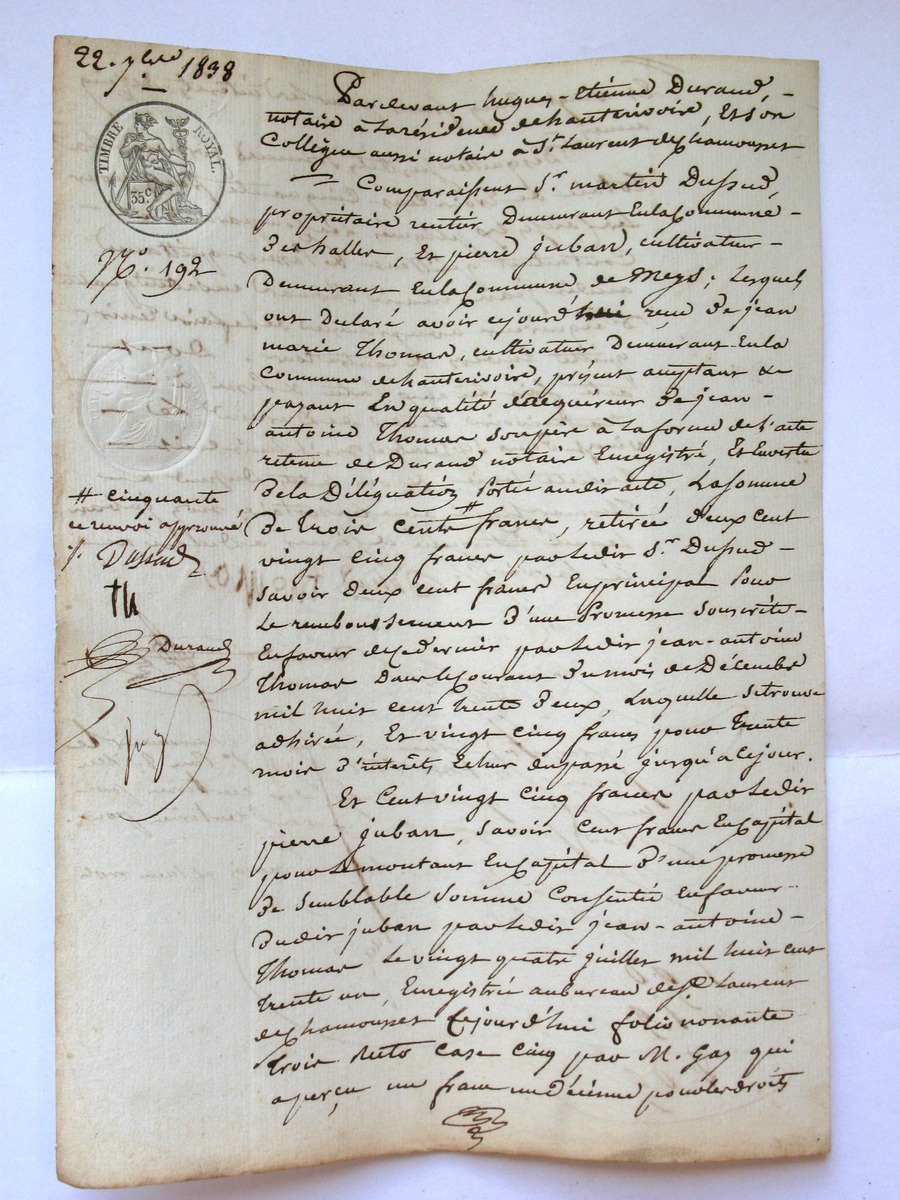 22. 7bre 1838
TIMBRE ROYAL
35 c
No. 192
Pardevant hugues-Etienne Durand,
notaire à la résidence de hauterivoire, Et son
Collègue aussi notaire à St. Laurent de Chamousset
Comparaissent Sr. martin Dussud,
propriétaire rentier Demeurant En la Commune
des halles, Et pierre juban, cultivateur
Demeurant En la Commune de Meys; Lesquels
ont Déclaré avoir cejourd'hui reçu de jean
marie Thomas, cultivateur Demeurant En la
Commune de hauterivoire, présent acceptant &
payant En qualité d'acquéreur de jean-
antoine Thomas son père à la forme de l'acte
retenu de Durand notaire Enregistré, Et En vertu
de la Délégation Portée audit acte, La somme
de trois cents # francs, retirée deux cent
vingt cinq francs par ledit Sr. Dussud
savoir deux cent francs En principal Pour
Le remboursement d'une Promesse souscrite
En faveur de ce dernier par ledit jean-antoine
Thomas Dans le Courant du mois de Décembre
mil huit cent trente deux, Laquelle se trouve
adhirée, Et vingt cinq francs pour trente
mois d'intérêts Echus du passé jusqu'à ce jour.
Et Cent vingt cinq francs par ledit
pierre juban, savoir cent francs En Capital
pour le montant En Capital d'une promesse
de semblable somme Consentie En faveur
dudit juban par ledit jean-antoine
Thomas Le vingt quatre juillet mil huit cent
trente un, Enregistrée au bureau de St. Laurent
de Chamousset Cejourd'hui folio nonante
trois recto case cinq par M. Gay qui
a perçu un franc un Décime pour les droits
# Cinquante
ce renvoi approuvé
Dussud
th
Durand